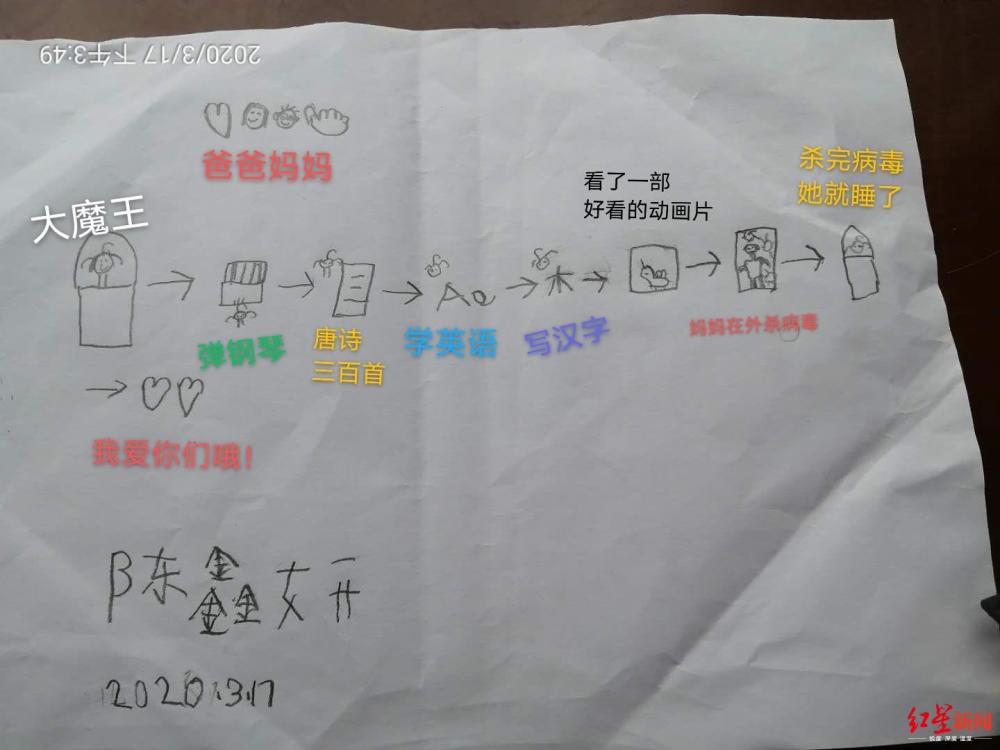 2020/3/17 下午3:49
爸爸妈妈
大魔王
看了一部
好看的动画片
杀完病毒
她就睡了
Aa
木
弹钢琴
唐诗
三百首
学英语
写汉字
妈妈在外杀病毒
我爱你们哦!
陈鑫妍
2020.3.17
红星新闻
锐度 深度 温度